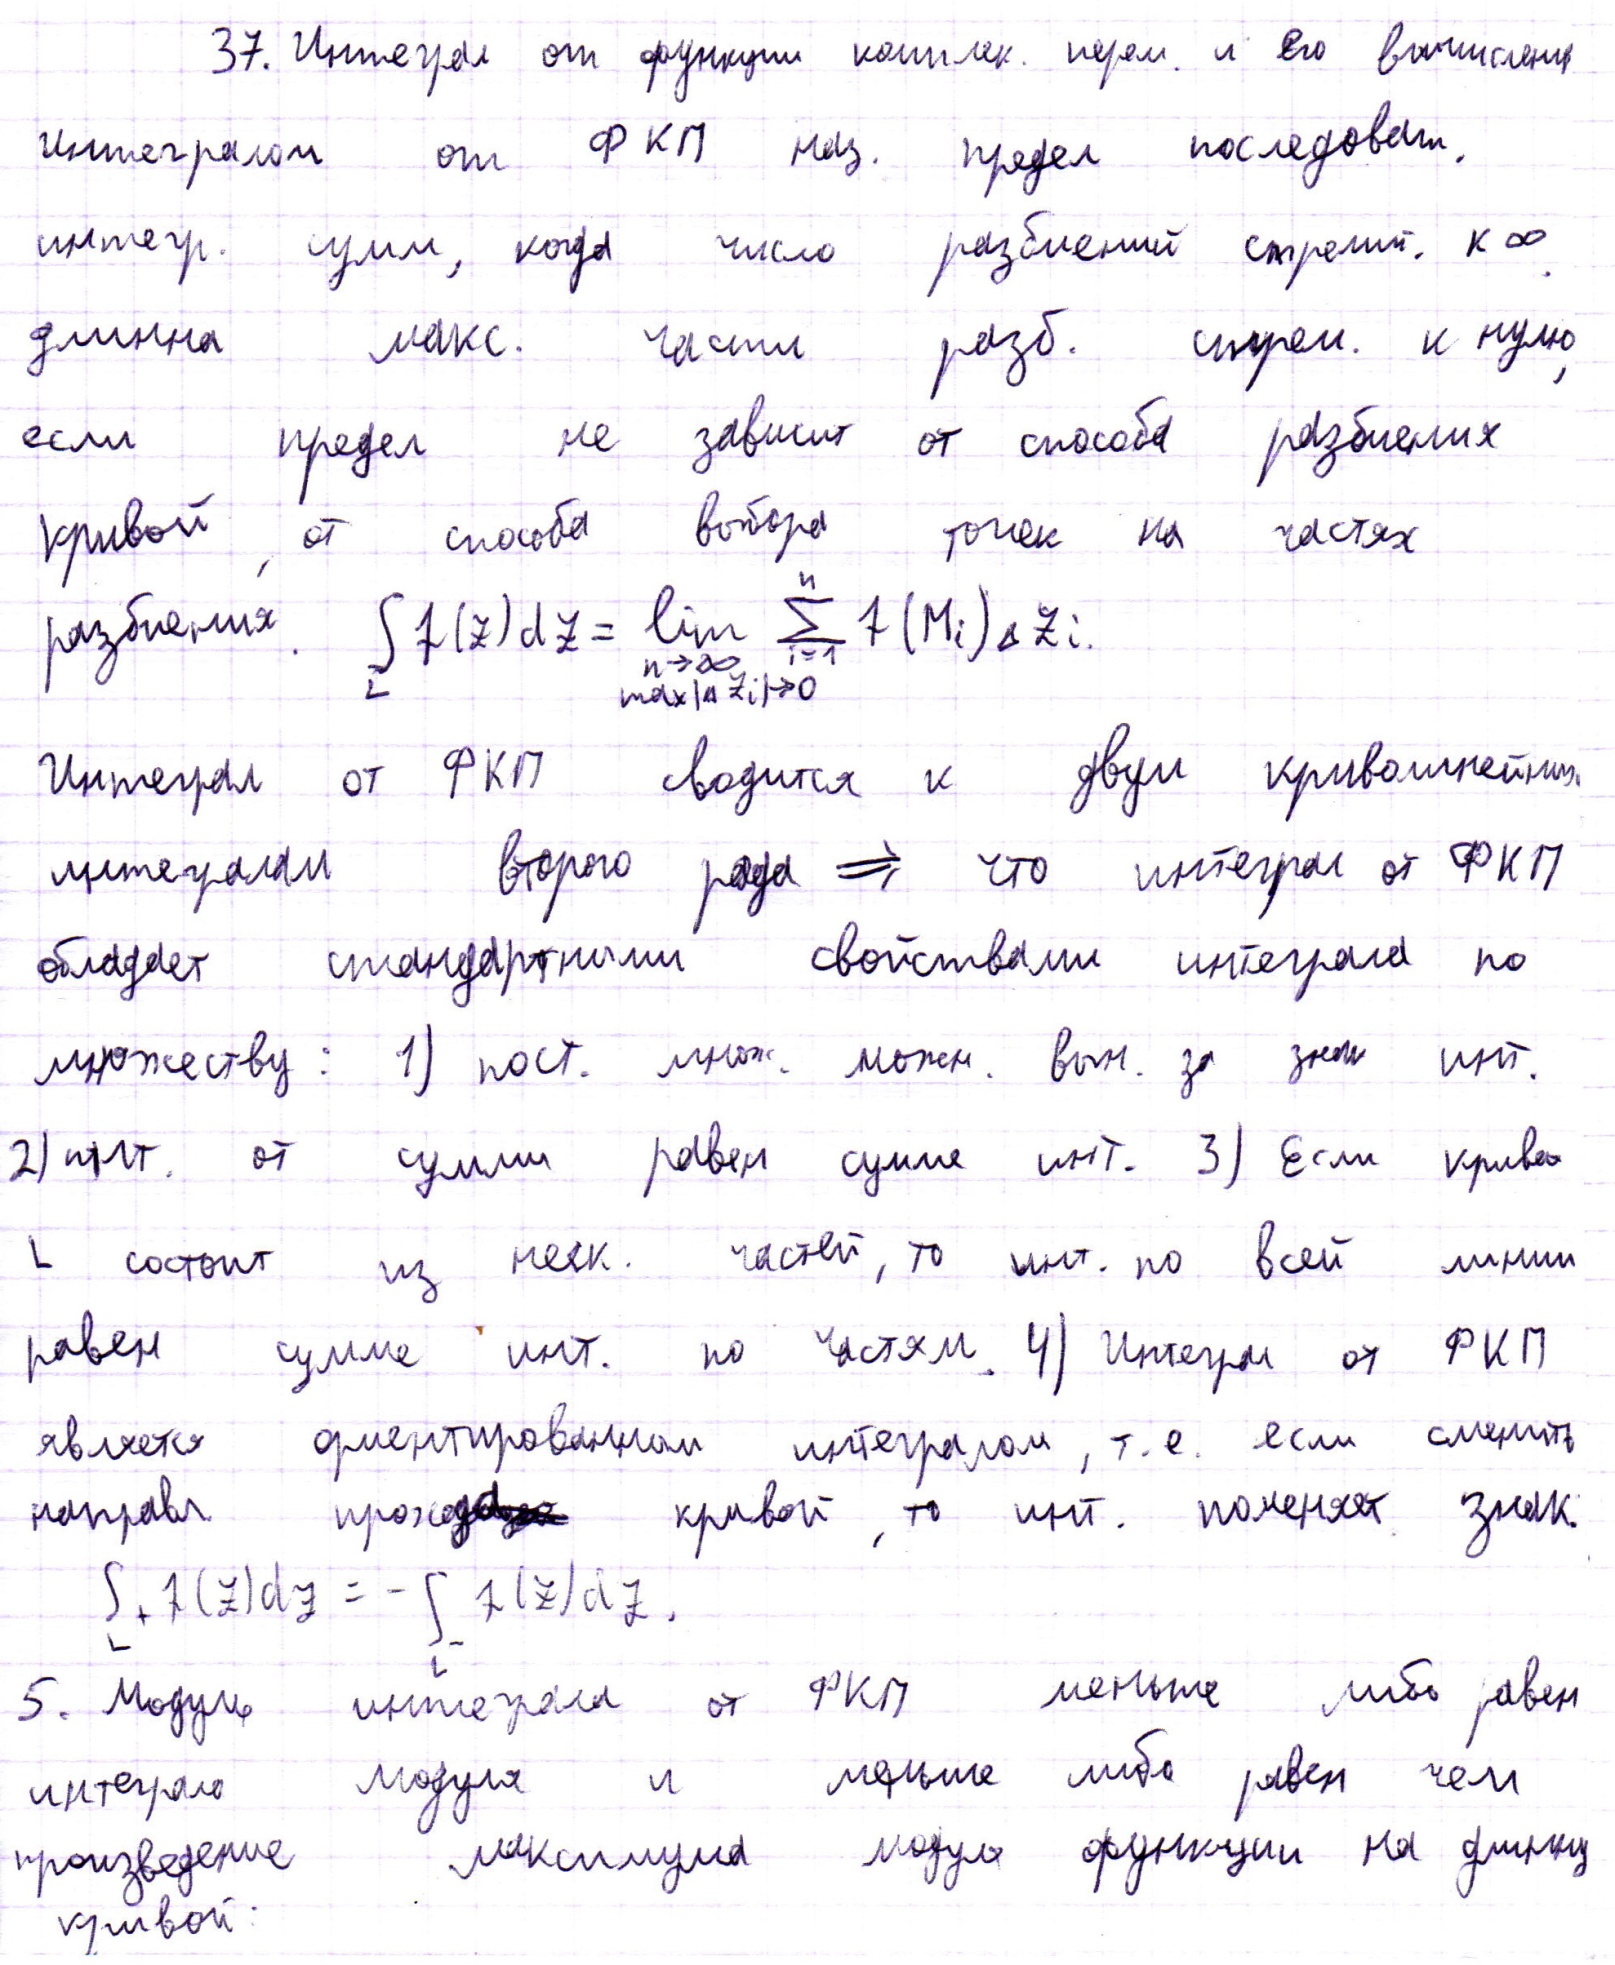 37. Интеграл от функции комплек. перем. и его вычисления
Интегралом от ФКП наз. предел последоват.
интегр. сумм, когда число разбиений стремит. к ∞.
длинна макс. части разб. стрем. к нулю,
если предел не зависит от способа разбиения
кривой, от способа выбора точек на частях
разбиения. ∫_L f(z)dz = lim_{n→∞, max|Δz_i|→0} ∑_{i=1}^{n} f(M_i)Δz_i.
Интеграл от ФКП сводится к двум криволинейным
интегралам второго рода ⇒ что интеграл от ФКП
обладает стандартными свойствами интеграла по
множеству: 1) пост. множ. можн. вын. за знак инт.
2) инт. от суммы равен сумме инт. 3) Если кривая
L состоит из неск. частей, то инт. по всей линии
равен сумме инт. по частям. 4) Интеграл от ФКП
является ориентированном интегралом, т.е. если сменить
направл кривой, то инт. поменяет знак.
∫_{L+} f(z)dz = -∫_{L-} f(z)dz.
5. Модуль интеграла от ФКП меньше либо равен
интеграла модуля и меньше либо равен чем
произведение максимума модуля функции на длинну
кривой: